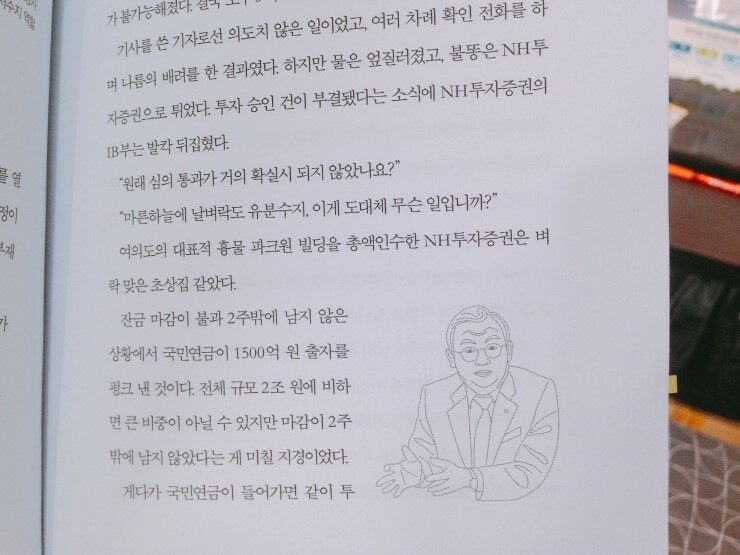 가 불가능해졌다. 결국
기사를 쓴 기자로선 의도치 않은 일이었고, 여러 차례 확인 전화를 하
며 나름의 배려를 한 결과였다. 하지만 물은 엎질러졌고, 불똥은 NH투
자증권으로 튀었다. 투자 승인 건이 부결됐다는 소식에 NH투자증권의
IB부는 발칵 뒤집혔다.
“원래 심의 통과가 거의 확실시 되지 않았나요?”
“마른하늘에 날벼락도 유분수지, 이게 도대체 무슨 일입니까?”
여의도의 대표적 흉물 파크원 빌딩을 총액인수한 NH투자증권은 벼
락 맞은 초상집 같았다.
잔금 마감이 불과 2주밖에 남지 않은
상황에서 국민연금이 1500억 원 출자를
펑크 낸 것이다. 전체 규모 2조 원에 비하
면 큰 비중이 아닐 수 있지만 마감이 2주
밖에 남지 않았다는 게 미칠 지경이었다.
게다가 국민연금이 들어가면 같이 투